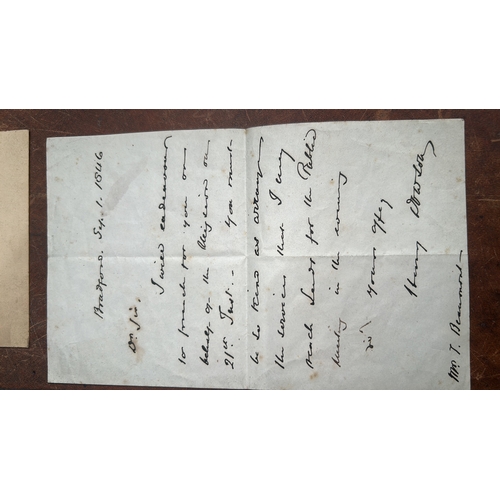 Bradford. Sep. 1. 1846
Dr Sir.
I will endeavour
to preach for you on
behalf of the Mission on
21st Inst. - You must
be so kind as arrange
the services that I may
reach Leeds for the Public
Meeting in the evening
Yours affy
Henry Dowson
Mr T. Beaumont